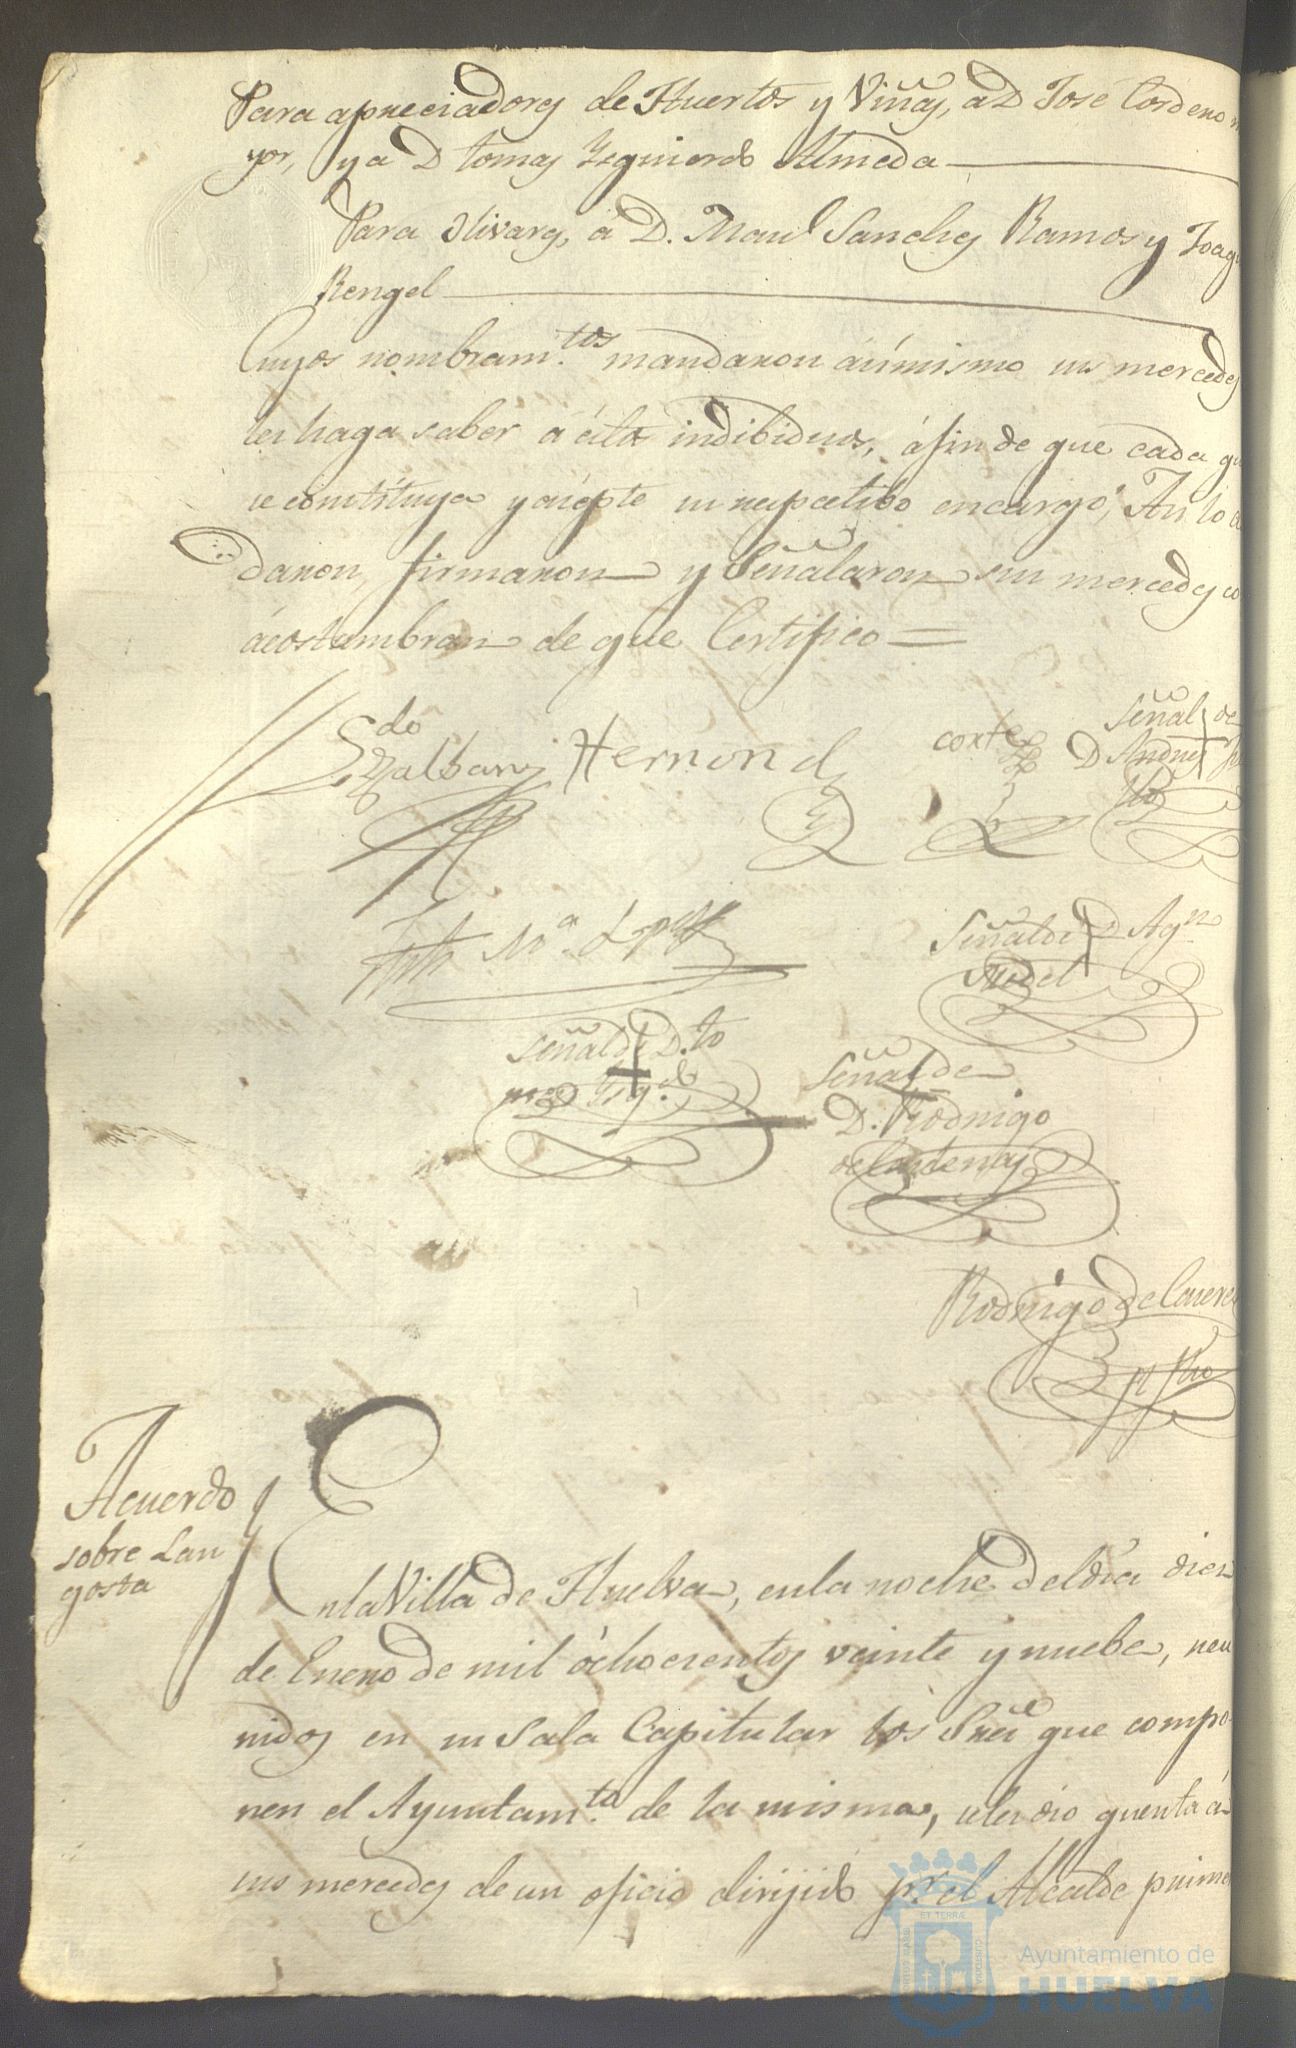 Para apreciadores de Huertos y Viñas, a D José Cordero m
yor, y a D tomas Yzquierdo Almeda
Para Olivares, á D. Manl Sanches Ramos y Joaqu
Rengel
Cuyos nombram.tos mandaron ásimismo sus mercedes
les haga saber á éstos indibiduos, áfin de que cada qu
se constituya y acepte su respectibo encargo; Asi lo a
daron, firmaron y Señalaron sus mercedes co
ácostumbran de que Certifico
Hernond
cortes
Señal de
D Andres
Señal de D Agn
Señal de D. to
mas Yzq.do
Señal de
D. Rodrigo
de Cartenas
Rodrigo de
Acuerdo
sobre Lan
gosta
En la Villa de Huelva, en la noche del dia dies
de Enero de mil óchocientos veinte y nuebe, reu
nidos en su Sala Capitular los Sres que compo-
nen el Ayuntam.to de la misma, se les dio quenta á
sus mercedes de un oficio dirijido pr. el Alcalde prime
Ayuntamiento de
HUELVA